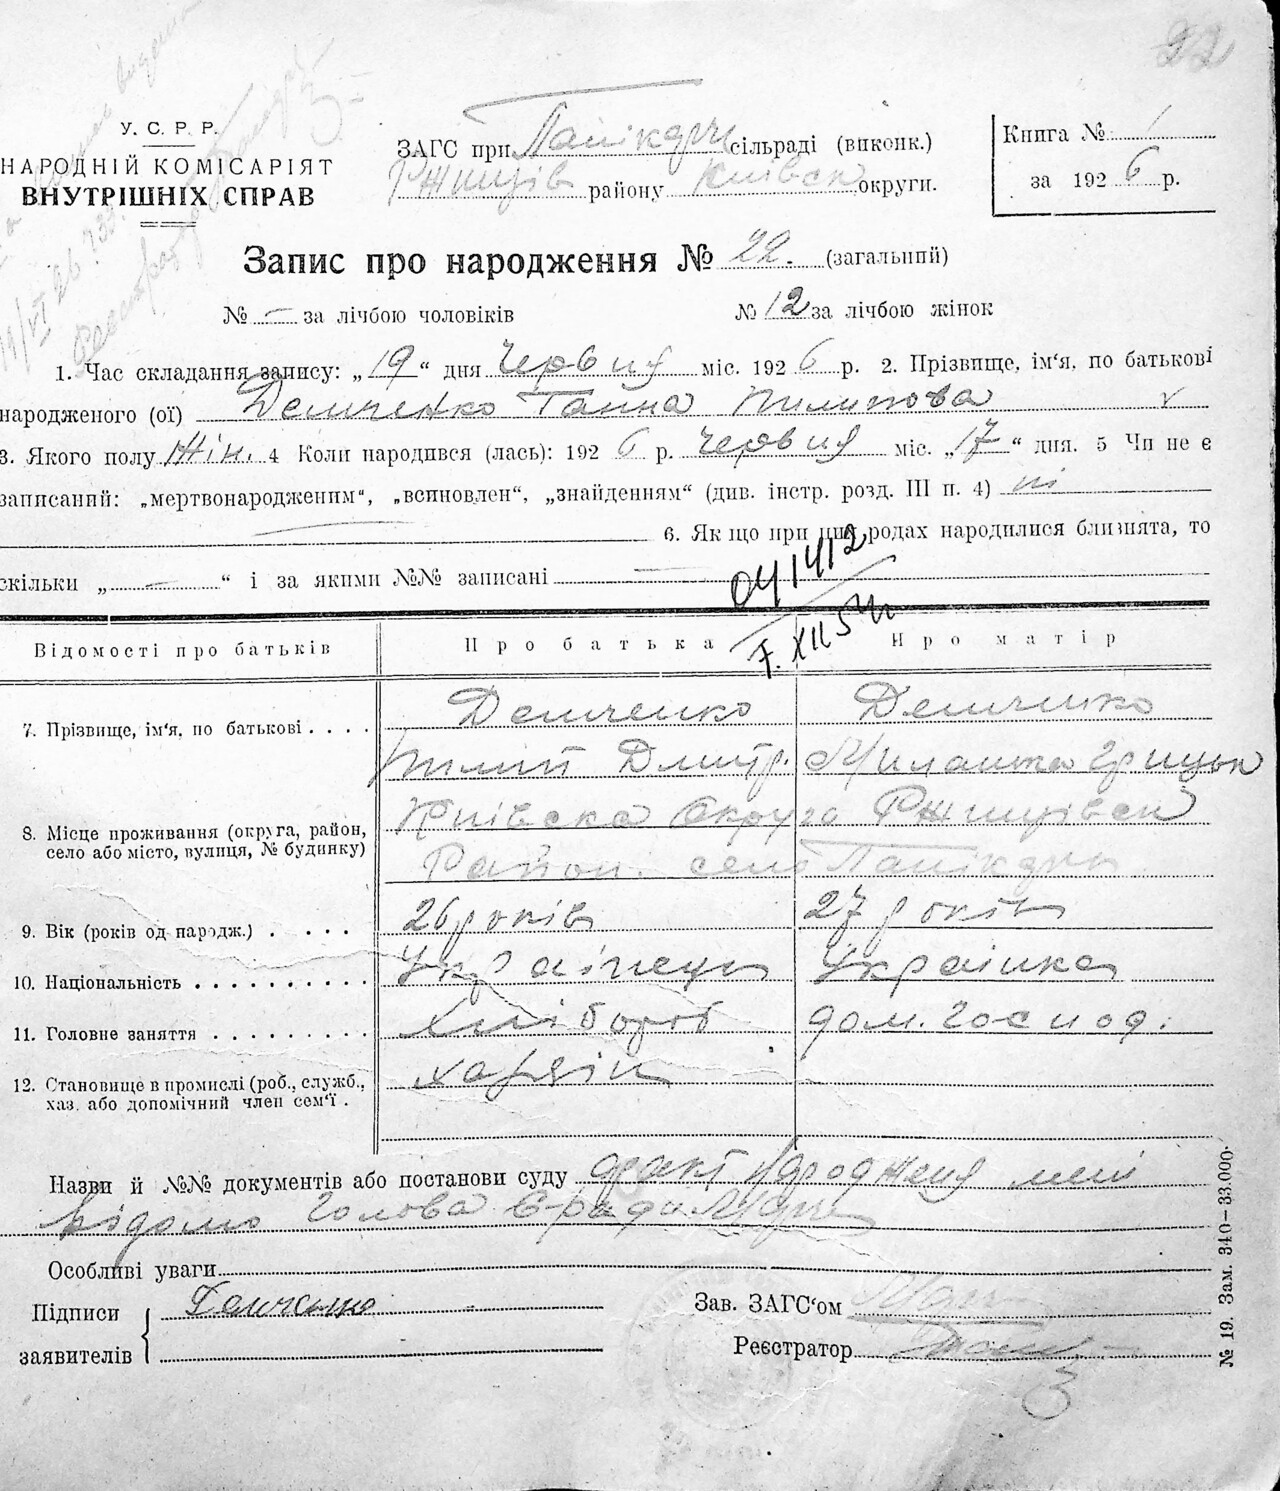 22
У. С. Р. Р.
НАРОДНІЙ КОМІСАРІЯТ
ВНУТРІШНІХ СПРАВ
ЗАГС при Папікарчи сільраді (виконк.)
Ржищів району Київск округи.
Книга № 1
за 1926 р.
Запис про народження № 22. (загальний)
№ - за лічбою чоловіків № 12 за лічбою жінок
1. Час складання запису: „19“ дня червня міс. 1926 р. 2. Прізвище, ім'я, по батькові
народженого (ої) Демченко Ганна Пилипова
3. Якого полу жін. 4 Коли народився (лась): 1926 р. червня міс. „17“ дня. 5 Чи не є
записаний: „мертвонародженим“, „всиновлен“, „знайденням“ (див. інстр. розд. III п. 4) ні
6. Як що при цих родах народилися близнята, то
скільки „ - “ і за якими №№ записані
041412
7. XII 54
Відомості про батьків Про батька Про матір
7. Прізвище, ім'я, по батькові Демченко Демченко
Пилип Дмитр.
8. Місце проживання (округа, район,
село або місто, вулиця, № будинку)
Київска Округа Ржищівск
Район. село Папікарчи
9. Вік (років од народж.) 26 років 27 років
10. Національність Українець Українка
11. Головне заняття хлібороб дом. господ.
12. Становище в промислі (роб., служб.,
хаз. або допомічний член сем'ї. хазяїн
Назви й №№ документів або постанови суду факт народженя мені
відомо Голова С-ради
Особливі уваги
Підписи
заявителів
Демченко
Зав. ЗАГС'ом
Реєстратор
№ 19. Зам. 340—33.000.